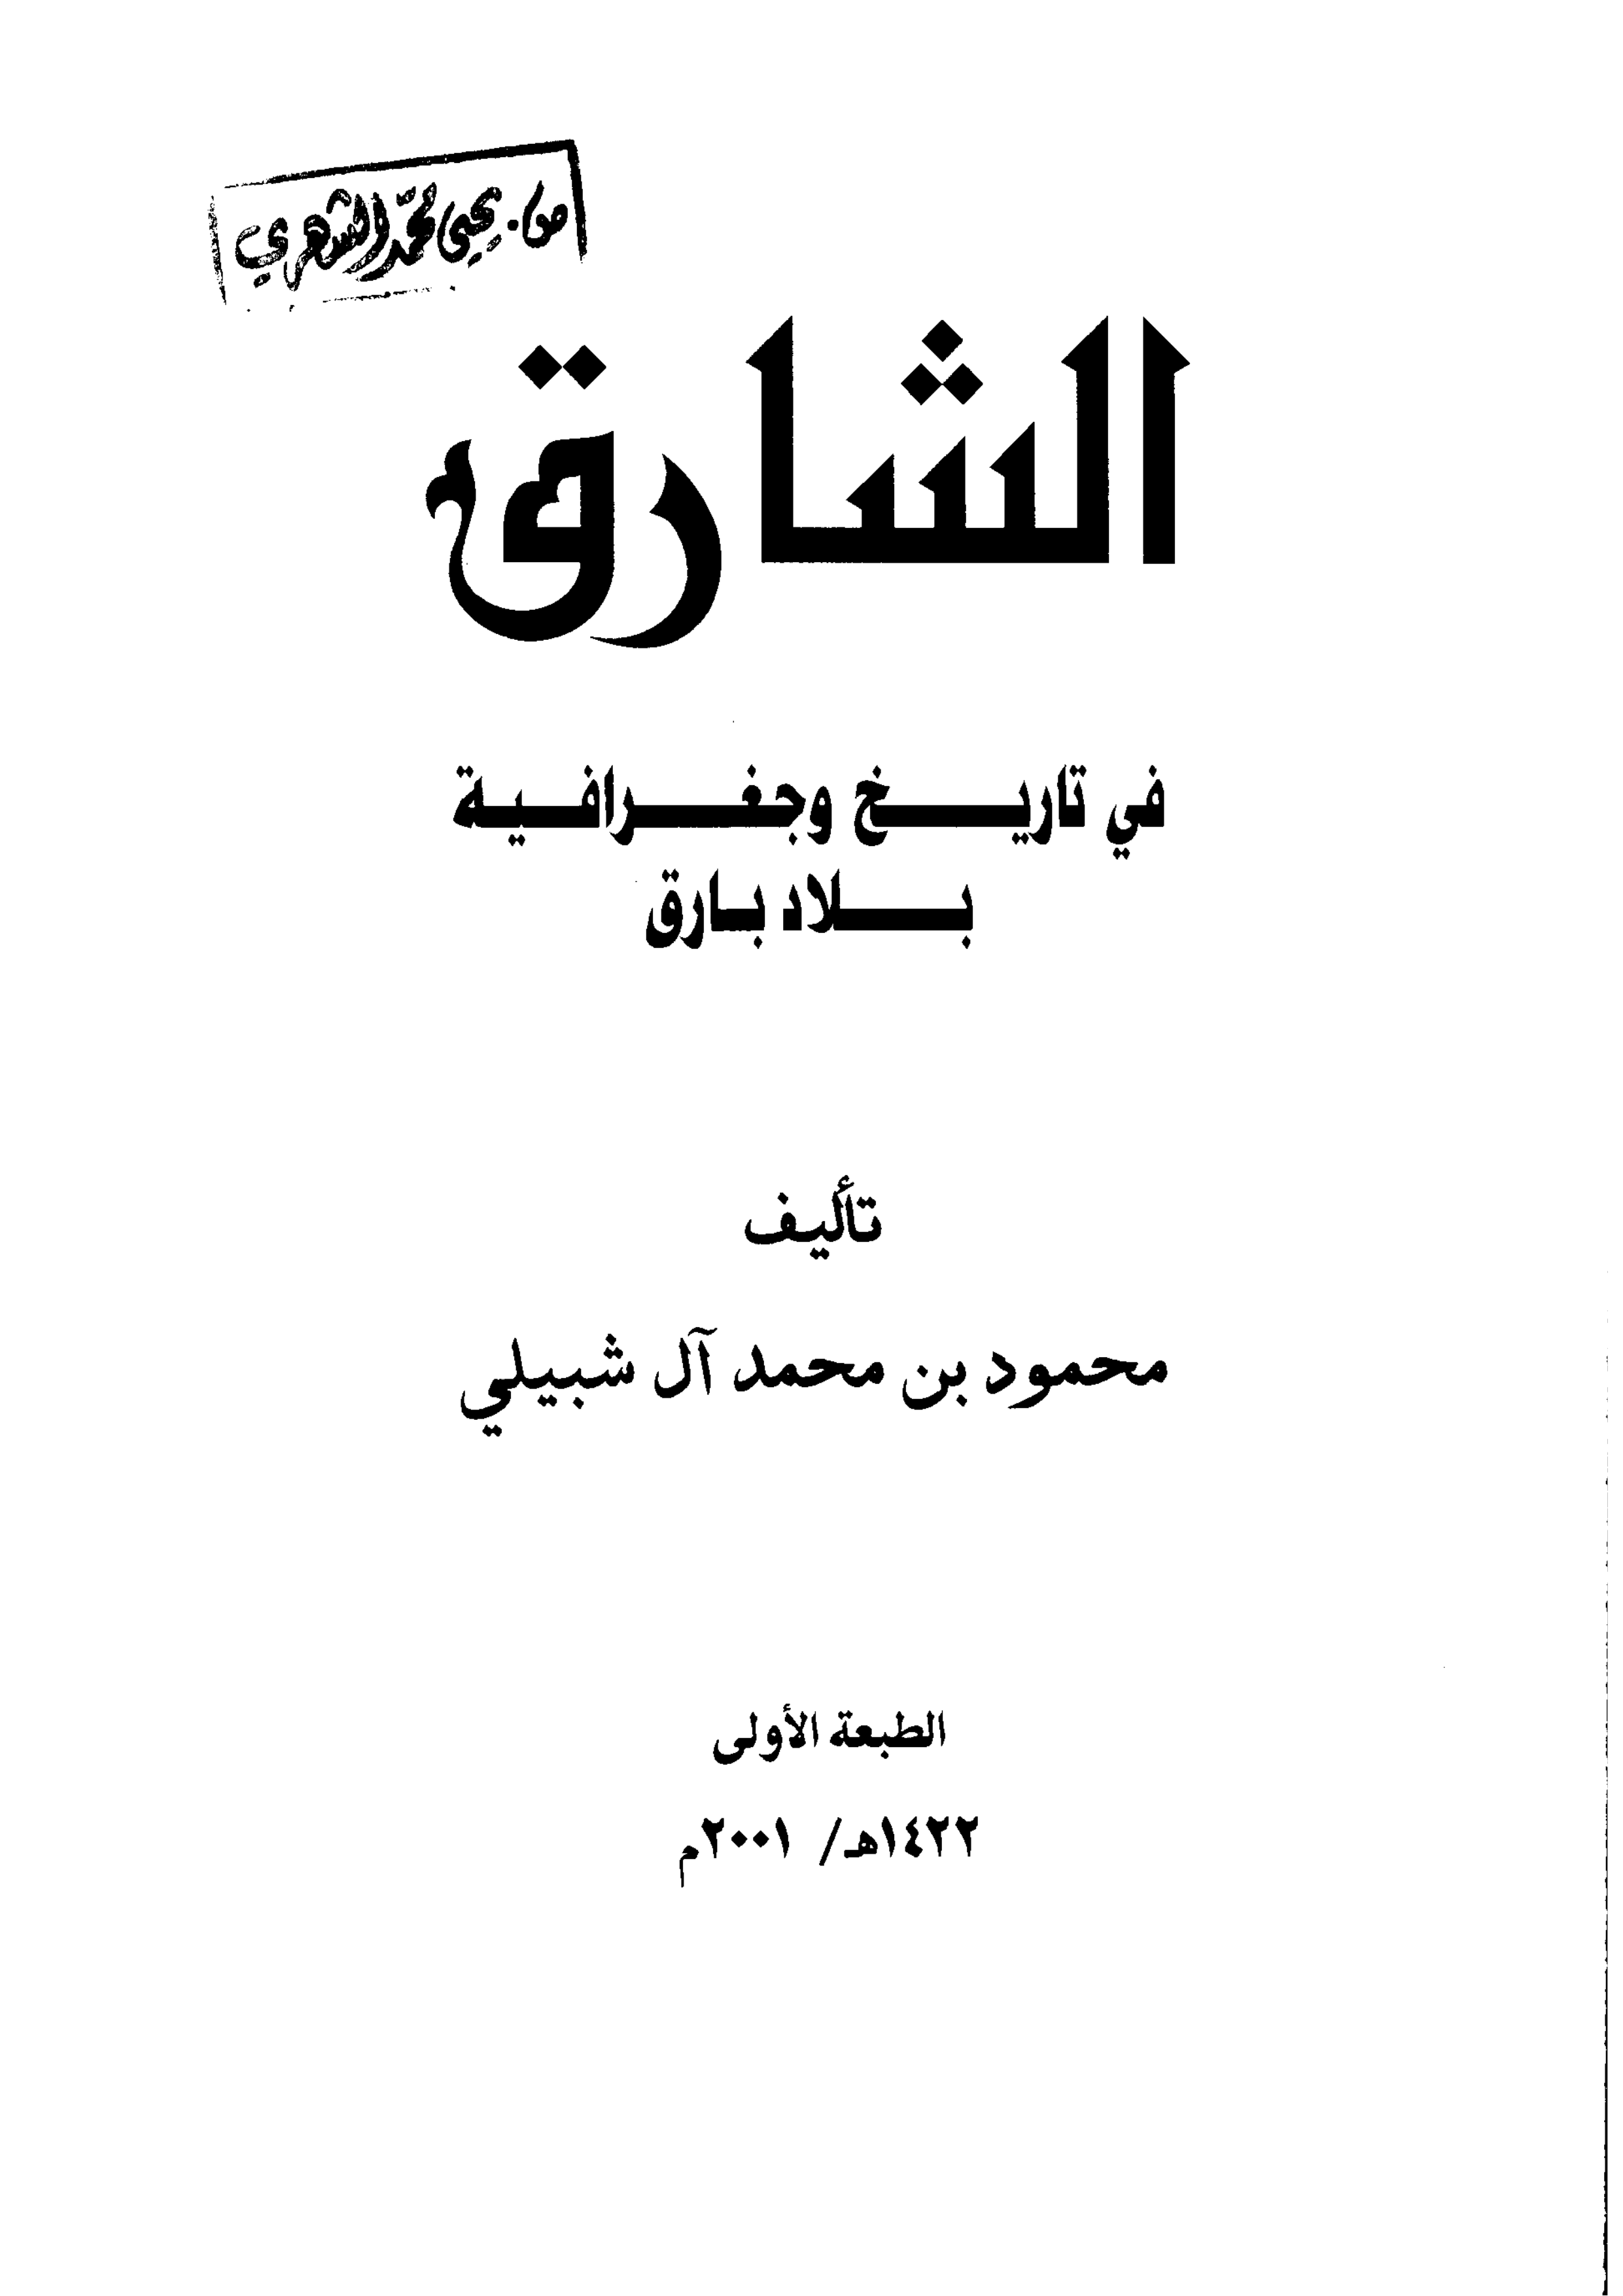 يحيى محمد الشهري
الشارق
في تاريخ وجغرافية
بلاد بارق
تأليف
محمود بن محمد آل شبيلي
الطبعة الأولى
١٤٢٢هـ/ ٢٠٠١م